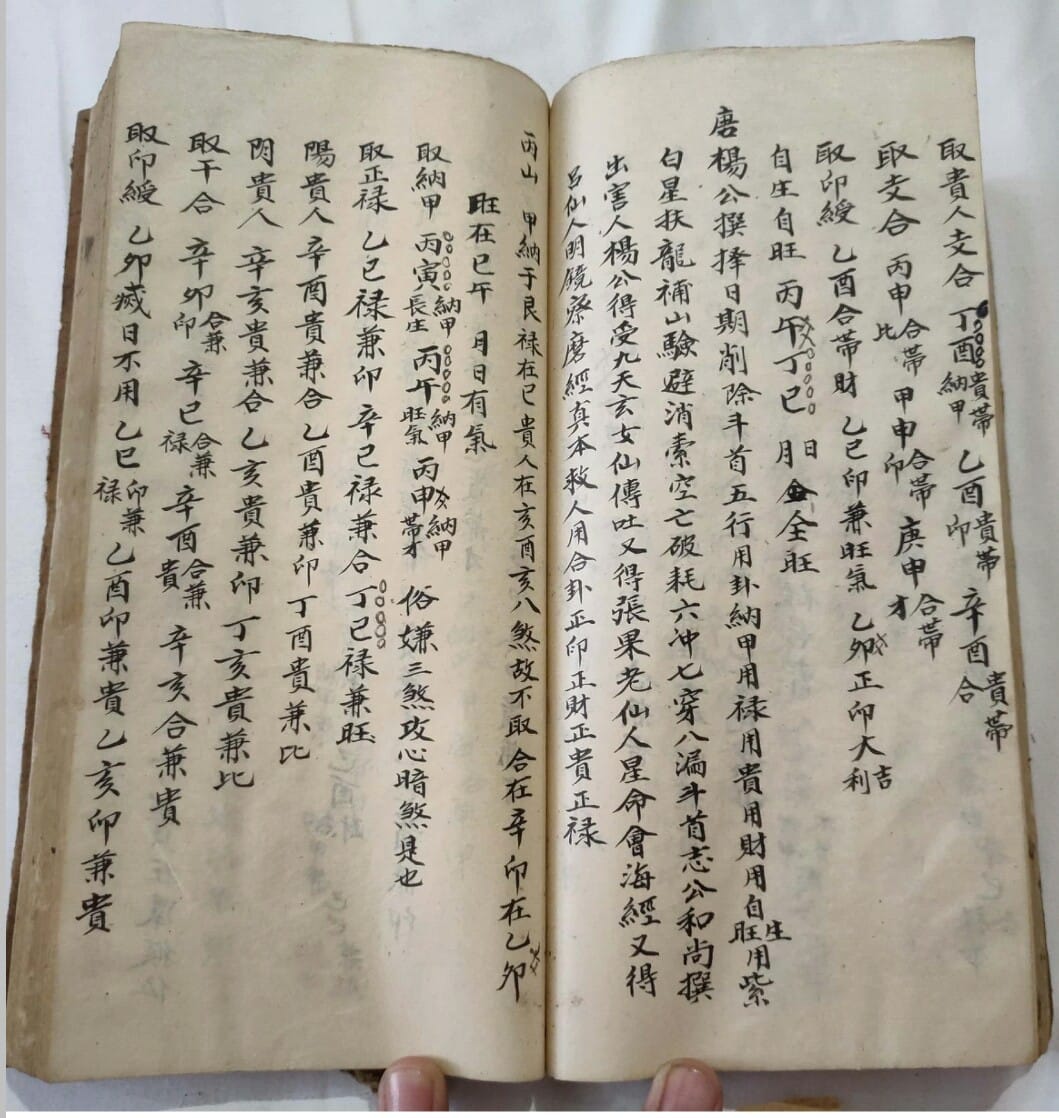 取貴人支合 丁酉貴帶納甲 乙酉貴帶印 辛酉貴帶合
取支合 丙申合帶比 甲申合帶印 庚申合帶才
取印綬 乙酉合帶財 乙巳印兼旺氣 乙卯正印大吉利
自生自旺 丙午丁巳 月日全旺
唐楊公撰擇日期削除斗首五行用卦納甲用禄用貴用財用自生旺用紫
白星扶龍補山驗避消索空亡破耗六冲七穿八漏斗首志公和尚撰
出害人楊公得受九天玄女仙傳吐又得張果老仙人星命會海經又得
吕仙人明鏡察磨經真本救人用合卦正印正財正貴正禄
丙山 甲納于艮禄在巳貴人在亥酉亥八煞故不取合在辛印在乙卯
旺在巳午 月日有氣
取納甲 丙寅納甲長生 丙午納甲旺氣 丙申納甲帶才 俗嫌三煞攻心暗煞是也
取正禄 乙巳禄兼印 辛巳禄兼合 丁巳禄兼旺
陽貴人 辛酉貴兼合 乙酉貴兼印 丁酉貴兼比
閉貴人 辛亥貴兼合 乙亥貴兼印 丁亥貴兼比
取干合 辛卯合兼印 辛巳合兼禄 辛酉合兼貴 辛亥合兼貴
取印綬 乙卯滅日不用 乙巳印兼禄 乙酉印兼貴 乙亥印兼貴